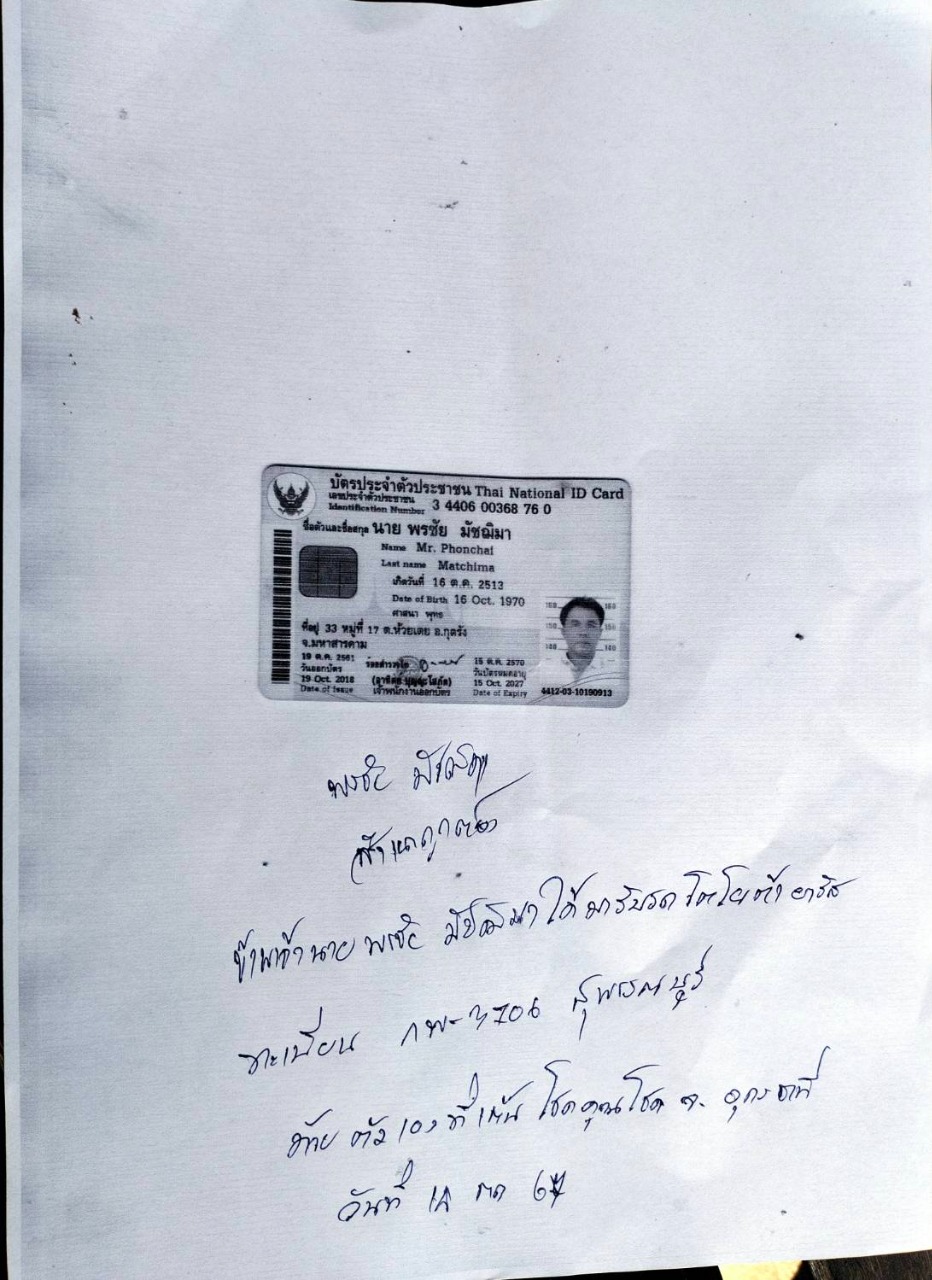 บัตรประจำตัวประชาชน Thai National ID Card
เลขประจำตัวประชาชน
Identification Number 3 4406 00368 76 0
ชื่อตัวและชื่อสกุล นาย พรชัย มัชฌิมา
Name Mr. Phonchai
Last name Matchima
เกิดวันที่ 16 ต.ค. 2513
Date of Birth 16 Oct. 1970
ศาสนา พุทธ
ที่อยู่ 33 หมู่ที่ 17 ต.ห้วยเตย อ.กุดรัง
จ.มหาสารคาม
19 ต.ค. 2561
วันออกบัตร
19 Oct. 2018
Date of Issue
เจ้าพนักงานออกบัตร
15 ต.ค. 2570
วันบัตรหมดอายุ
15 Oct. 2027
Date of Expiry
4412-03-10190913
พรชัย มัชฌิมา
สำเนาถูกต้อง
ข้าพเจ้า นาย พรชัย มัชฌิมา ได้มารับรถ โตโยต้า ยาริส
ทะเบียน กพ-3706 สุพรรณบุรี
ด้วยตัวเองที่เต้น โชคคูณโชค จ. อุดรธานี
วันที่ ตค 67